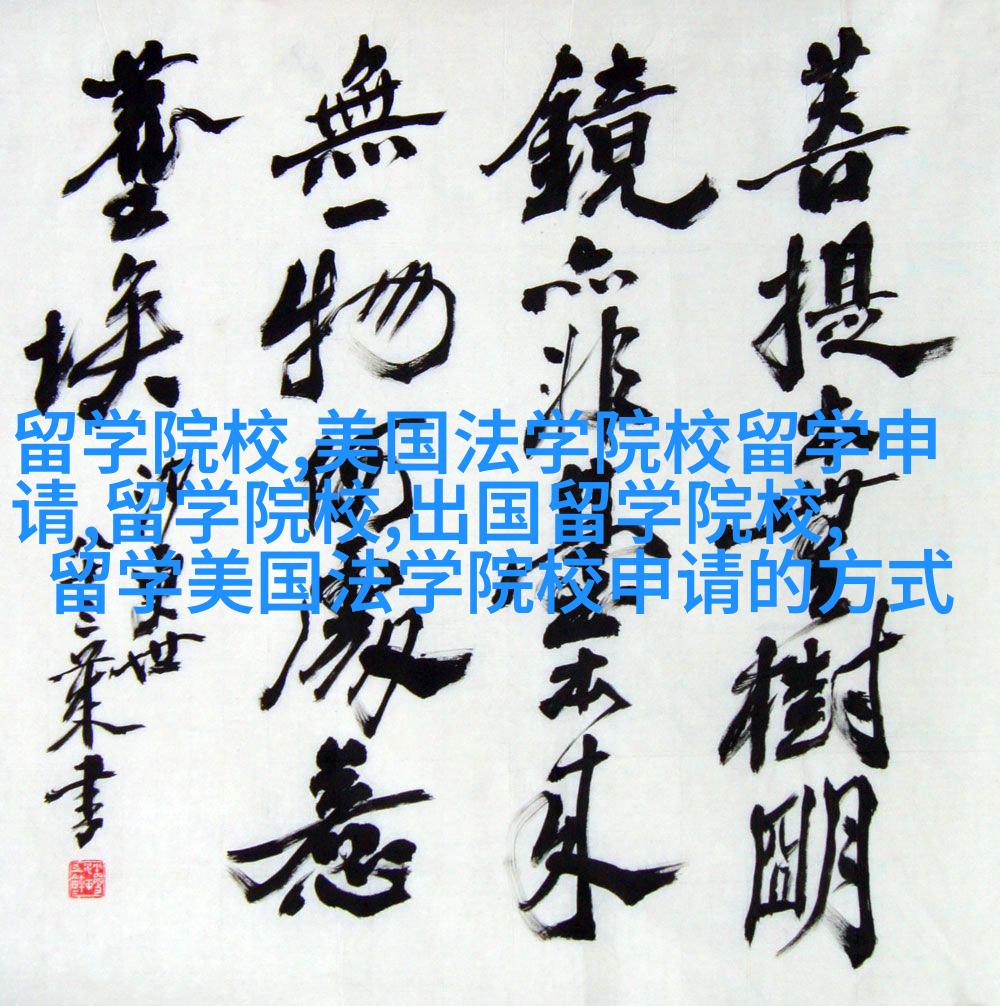 菩提本無樹明
鏡亦非臺本來
無一物何處惹
塵埃
書
留学院校,美国法学院校留学申
请,留学院校,出国留学院校,
留学美国法学院校申请的方式